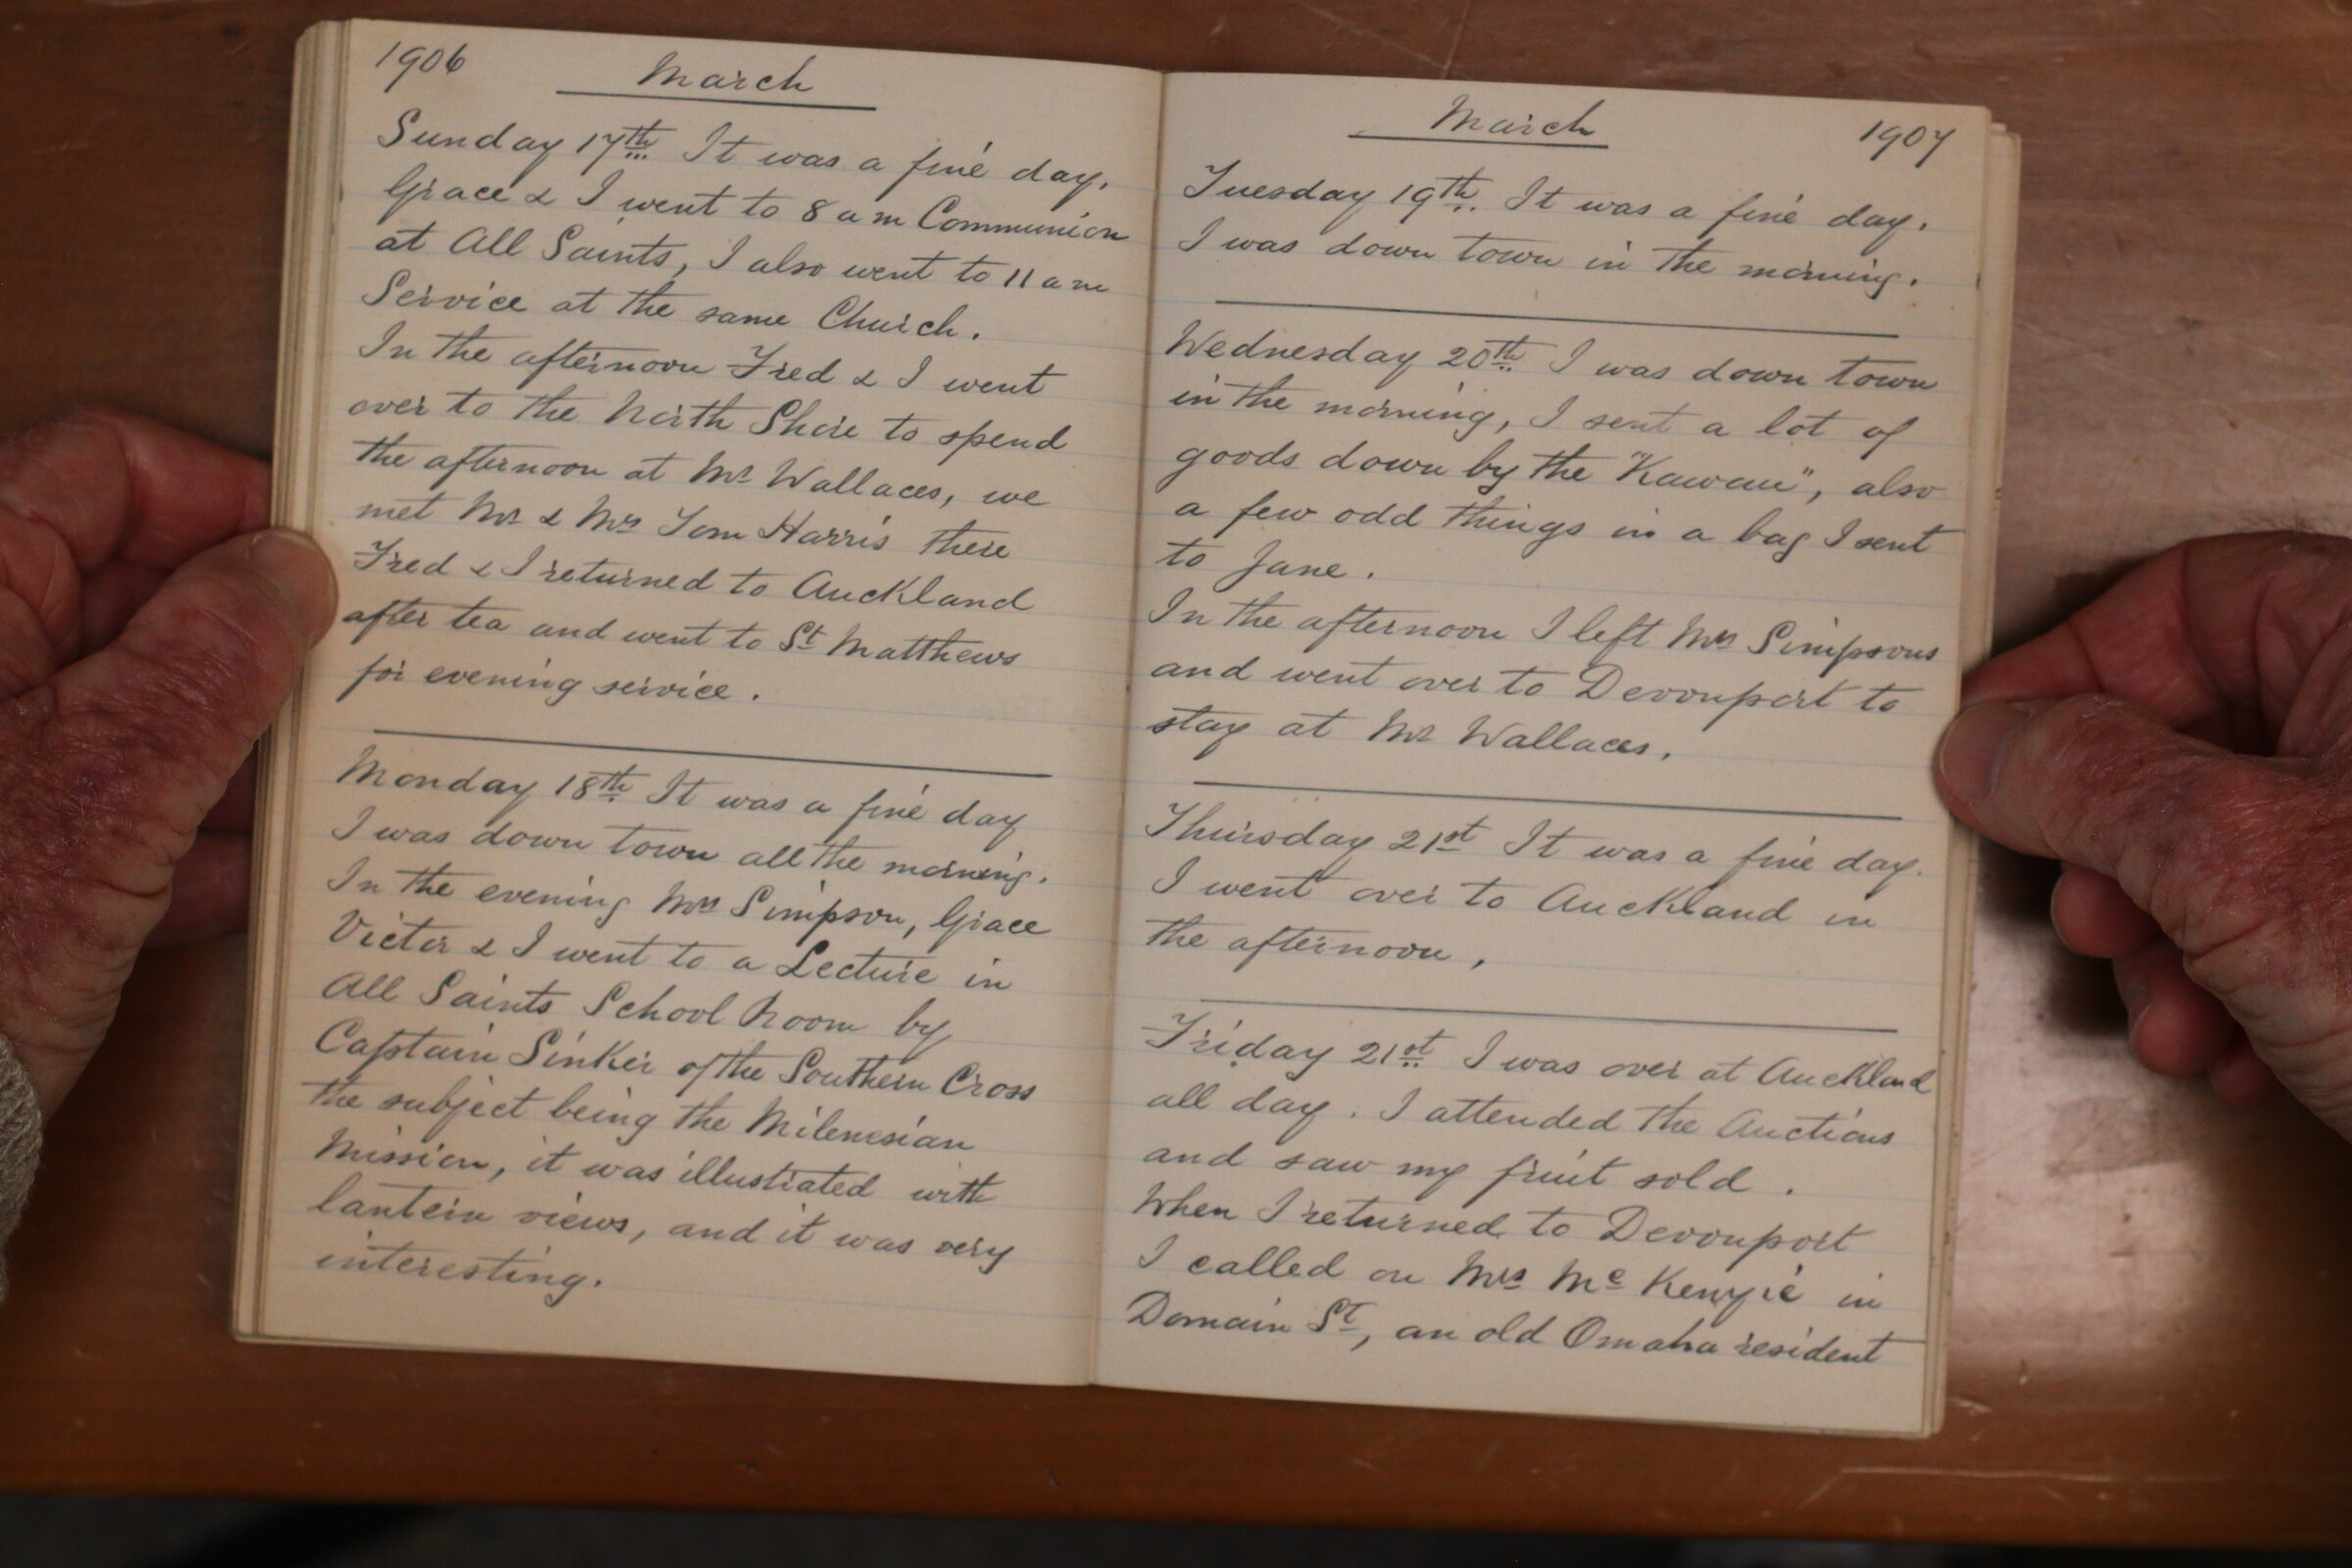 1906
March
Sunday 17th It was a fine day.
Grace & I went to 8 am Communion
at All Saints, I also went to 11 am
Service at the same Church.
In the afternoon Fred & I went
over to the North Shore to spend
the afternoon at Mr Wallaces, we
met Mr & Mrs Tom Harris there
Fred & I returned to Auckland
after tea and went to St Matthews
for evening service.
Monday 18th It was a fine day
I was down town all the morning.
In the evening Mrs Simpson, Grace
Victor & I went to a Lecture in
All Saints School Room by
Captain Sinker of the Southern Cross
the subject being the Milenesian
Mission, it was illustrated with
lantern views, and it was very
interesting.
March
1907
Tuesday 19th. It was a fine day.
I was down town in the morning.
Wednesday 20th I was down town
in the morning, I sent a lot of
goods down by the "Kawau", also
a few odd things in a bag I sent
to Jane.
In the afternoon I left Mrs Simpsons
and went over to Devonport to
stay at Mr Wallaces.
Thursday 21st It was a fine day.
I went over to Auckland in
the afternoon,
Friday 21st I was over at Auckland
all day. I attended the Auctions
and saw my fruit sold.
When I returned to Devonport
I called on Mrs McKenzie in
Domain St, an old Omaha resident